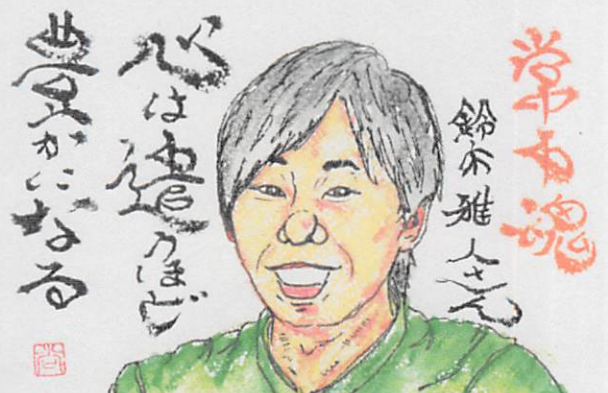 鈴木雅人さん
心は遣うほど
豊かになる
尚